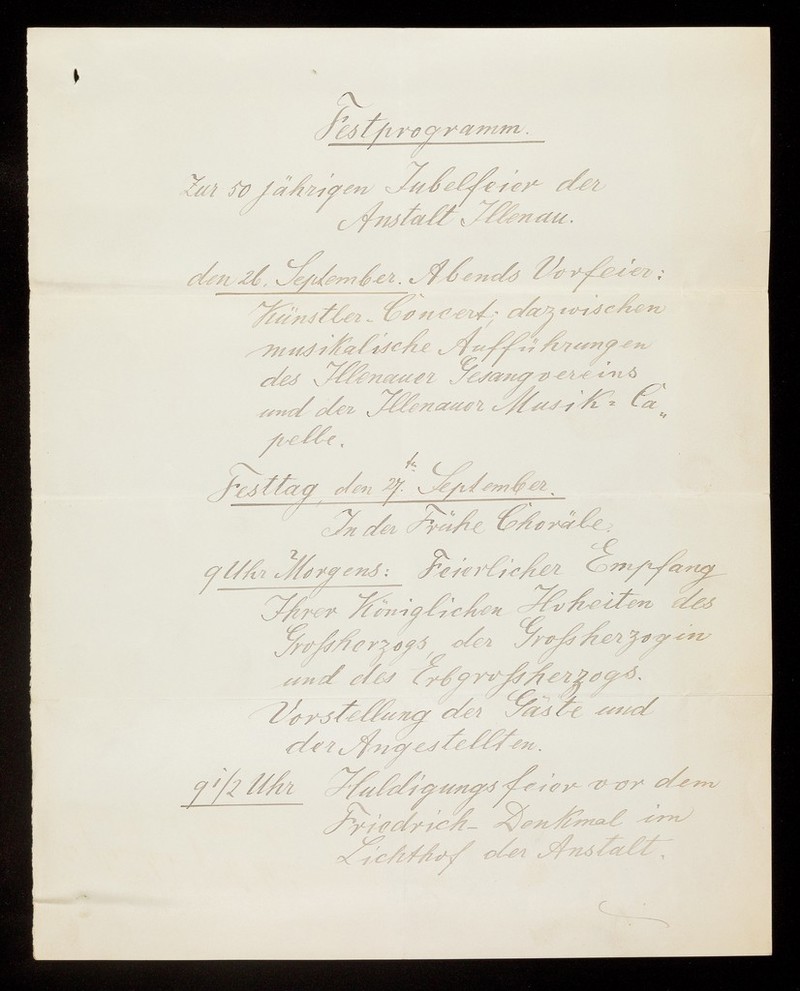 Festprogramm.
Zur 50 jährigen Jubelfeier der
Anstalt Illenau.
den 26. September. Abends Vorfeier:
Künstler-Concert; dazwischen
musikalische Aufführungen
des Illenauer Gesangvereins
und der Illenauer Musik=Ca„
pelle.
Festtag, den 27.ten September.
In der Frühe Choräle.
9 Uhr Morgens: Feierlicher Empfang
Ihrer Königlichen Hoheiten des
Großherzogs, der Großherzogin
und des Erbgroßherzogs.
Vorstellung der Gäste und
der Angestellten.
9 1/2 Uhr Huldigungsfeier vor dem
Friedrich-Denkmal im
Lichthof der Anstalt.